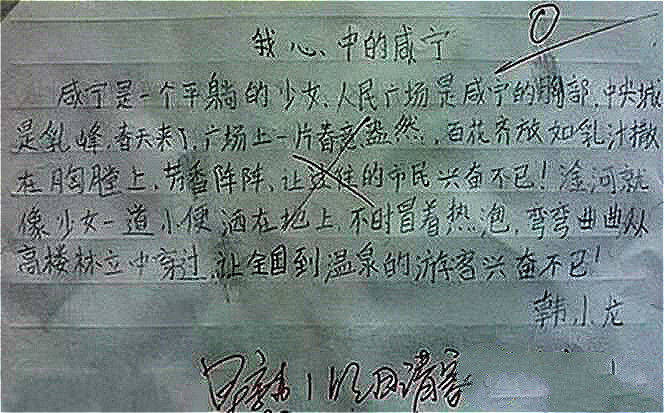 我心中的咸宁
0
咸宁是一个平躺的少女、人民广场是咸宁的胸部,中央城
是乳峰,春天来了,广场上一片春意盎然,百花齐放如乳汁撒
在胸膛上,芳香阵阵、让过往的市民兴奋不已!淦河就
像少女一道小便洒在地上,不时冒着热泡,弯弯曲曲从
高楼林立中穿过,让全国到温泉的游客兴奋不已!
韩小龙
明日请家